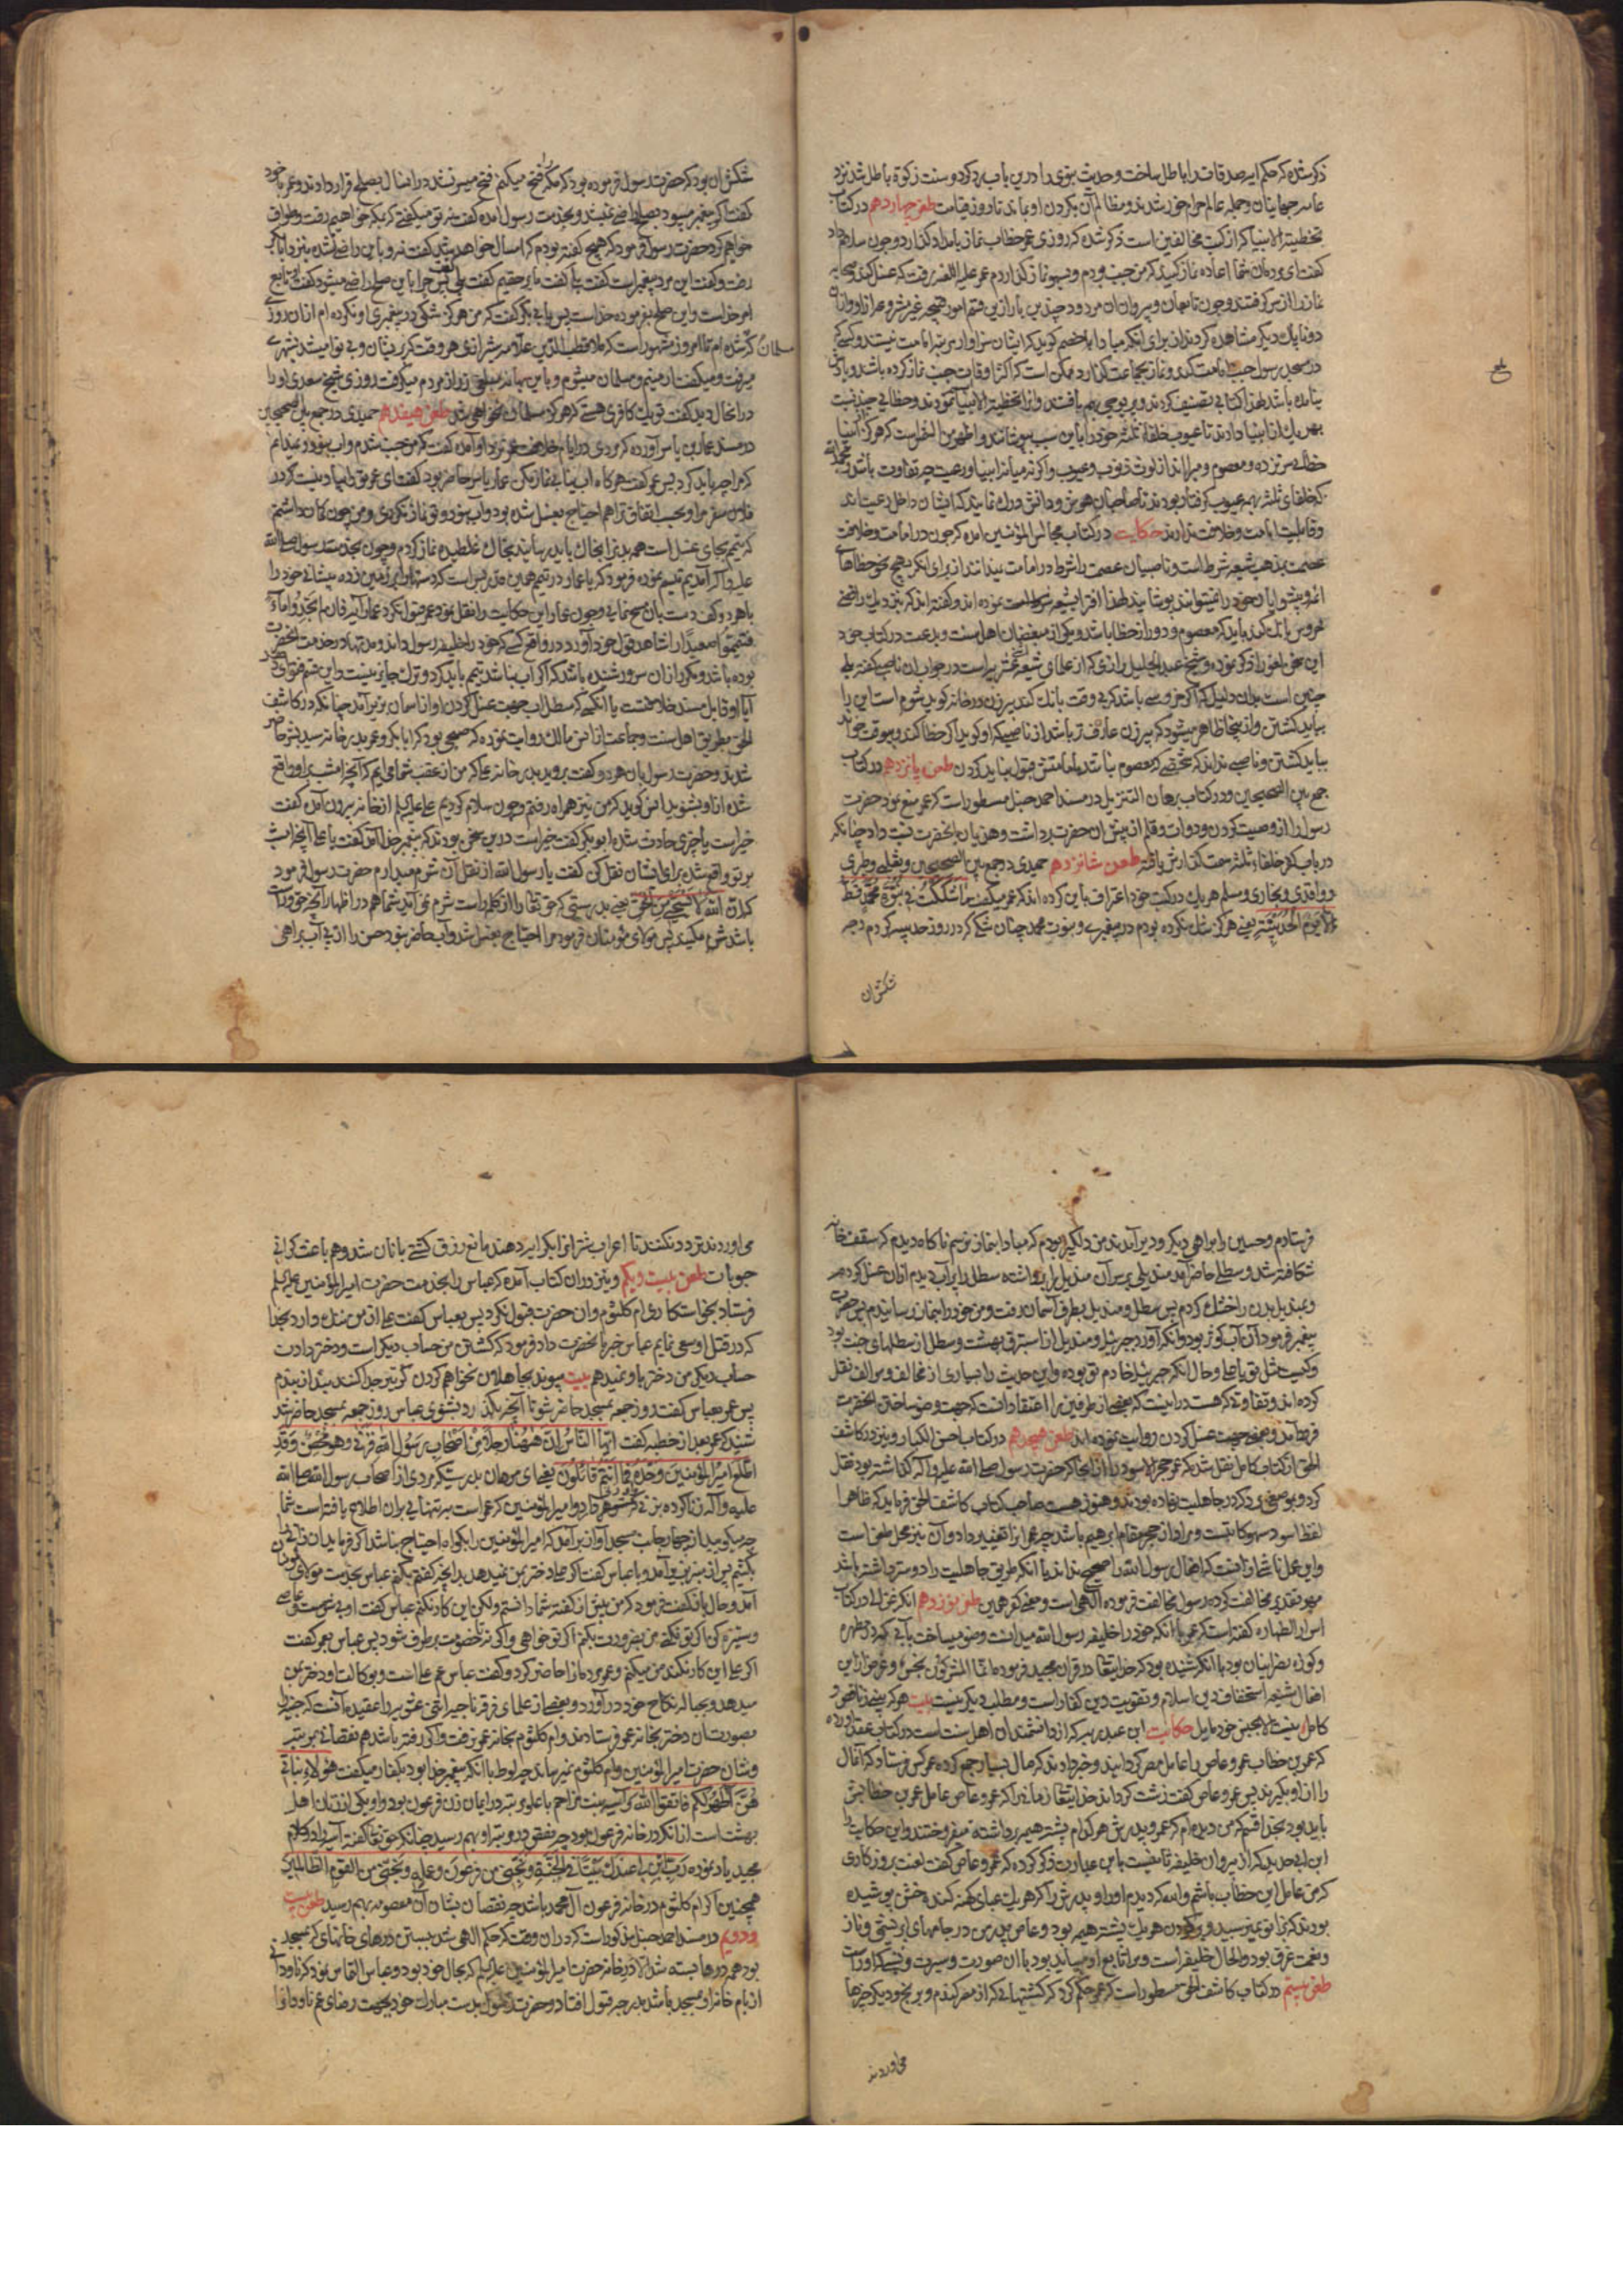 ذکر شده که حکم ایه صدقات را باطل ساخت و حدیث نبوی را درین باب رد کرد و سنت زکوة باطل شد نزد
عامه جهانیان و جمله عالم حرام خور شدند و مظالم آن بگردن او بماند تا روز قیامت طعن چهاردهم در کتاب
تخطیة الانبیا که از کتب مخالفین است ذکر شده که روزی عمر خطاب نماز بامداد گذارد و چون سلام داد
گفت ای مردمان شما اعاده نماز کنید که من جنب بودم و بسهو نماز گذاردم عمر علیه اللعنه رفت که غسل کند و صحابه
نماز را از سر گرفتند و چون تابعان و پیروان ان مردود چندین بار ازین قسم امور قبیحه غیر مشروعه از او و از ان
دو ناپاک دیگر مشاهده کردند از برای انکه مبادا خصم گوید که ایشان سزاوار مرتبه امامت نیستند و کسی که
در مسجد رسول جنب امامت کند و نماز بجماعت گذارد ممکن است که اکثر اوقات جنب نماز کرده باشد و بیاد
نیامده باشد لهذا کتابی تصنیف کردند و انرا تخطیة الانبیا نام نمودند و خطایی چند نسبت
بهر یک از انبیا دادند تا عیوب خلفاء ثلثه خود را باین سبب بپوشانند و اظهر من الشمس است که هرگز انبیا
خطا نورزیده و معصوم و مبرا اند از لوث ذنوب و عیوب و اگر نه میانه انبیا و رعیت چه تفاوت باشد
که خلفای ثلثه بهمه عیوب گرفتار بودند تا صاحبان هوش و دانش درک نمایند که ایشان داخل رعیت اند
و قابلیت امامت و خلافت ندارند حکایت در کتاب مجالس المؤمنین امده که چون در امامت و خلافت
عصمت بمذهب شیعه شرط است و ناصبیان عصمت را شرط در امامت نمیدانند از برای انکه بهیچ نحو خطاهای
ائمه و پیشوایان خود را نمیتوانند پوشانید لهذا افترا بشیعه نموده اند و گفته اند که نزدیک رافضی
خروس بانگ کند باید که معصوم و دور از خطا باشد و یکی از مبغضان اهل سنت و بدعت در کتاب خود
این سخن لغو را ذکر نموده و شیخ عبد الجلیل رازی که از علمای شیعه اثنی عشریه است در جواب ان ناصبی گفته بلی
چنین است بدان دلیل که اگر خروسی باشد که بی وقت بانگ کند پیرزن در خانه گوید شوم است این را
بباید کشتن و از اینجا ظاهر میشود که پیرزن عارف تر باشد از ناصبی که او گوید اگر خطا کند و بیوقت خواند
بباید کشتن و ناصبی نداند که شخصی که معصوم نباشد بامامتش قبول نباید کردن طعن پانزدهم در کتاب
جمع بین الصحیحین و در کتاب برهان التنزیل در مسند احمد حنبل مسطور است که عمر منع نمود حضرت
رسول را از وصیت کردن و دوات و قلم از پیش ان حضرت برداشت و هذیان بانحضرت نسبت داد چنانکه
در باب کفر خلفاء ثلثه سمت گذارش یافته طعن شانزدهم حمیدی در جمع بین الصحیحین و ثعلبی و طبری
و واقدی و بخاری و مسلم هر یک در کتب خود اعتراف باین کرده اند که عمر میگفت ما شککت فی نبوة محمد قط
الا یوم الحدیبیة یعنی هرگز شک نکرده بودم در پیغمبری و نبوت محمد چنان شکی که در روز حدیبیه کردم وجه
شکش ان
شکش ان بود که حضرت رسول فرموده بود که مکه را فتح میکنم فتح میسر نشد در انسال بصلح قرار دادند و عمر با خود
گفت اگر پیغمبر میبود بصلح راضی نمیشد و بخدمت رسول امده گفت نه تو میگفتی که بمکه خواهیم رفت و طواف
خواهیم کرد حضرت رسول فرمود که هیچ گفته بودم که امسال خواهد شد گفت نه و باین راضی نشده نزد ابابکر
رفت و گفت این مرد پیغمبر است گفت بلی گفت ما بر حقیم گفت بلی گفت پس چرا باین صلح راضی میشود گفت او تابع
امر خداست و این صلح بفرموده خداست پس بابی بکر گفت که من هرگز شکی در پیغمبری او نکرده ام از ان روزی
مسلمان که شده ام تا امروز مشهور است که ملا قطب الدین علامه شیرازی هر وقت که پریشان و بی نوا میشد بشهری
میرفت و میگفت ارمنیم و مسلمان میشوم و باین بهانه مبلغی زر از مردم میگرفت روزی شیخ سعدی او را
در انحال دید گفت تو یک کافری هستی که هرگز مسلمان نخواهی شد طعن هیفدهم حمیدی در جمع بین الصحیحین
در مسند عمار بن یاسر آورده که مردی در ایام خلافت عمر نزد او آمده گفت که من جنب شدم و اب نبود و نمیدانم
که مرا چه باید کرد پس عمر گفت هرگاه اب نیابی نماز مکن عمار یاسر حاضر بود گفت ای عمر تو را بیاد نیست که در
فلان سفر مرا و بحسب اتفاق ترا هم احتیاج بغسل شده بود و اب نبود و تو نماز نکردی و من چون گمان داشتم
که تیمم بجای غسل است همه بدنرا بخاک باید رسانید بخاک غلطیده نماز کردم و چون بخدمت رسول صلی الله
علیه و آله آمدیم تبسم نموده فرمود که یا عمار در تیمم همین قدر بس است که دستها را بر زمین زده پیشانی خود را
با هر دو کف دست بان مسح نمایی و چون عمار این حکایت را نقل نمود عمر قبول نکرد عمار آیه فان لم تجدوا ماء
فتیمموا صعیدا را شاهد قول خود آورد در واقع کسی که خود را خلیفه رسول داند و مدتها در خدمت انحضرت
بوده باشد و مکرر از ان سرور شنیده باشد که اگر اب نباشد تیمم باید کرد و ترک جایز نیست و این قسم فتوای
آیا او قابل مسند خلافتست یا انکسی که سطل اب جهت غسل کردن او از اسمان بزیر آمد چنانکه در کاشف
الحق بطریق اهل سنت و جماعت از انس مالک روایت نموده که صبحی بود که ابابکر و عمر بدر خانه سید بشر حاضر
شدند و حضرت رسول بان هر دو گفت بروید بدر خانه علی که من از عقب شما می ایم که آنچه امشب بر او واقع
شده از او بشنوید انس گوید که من نیز همراه رفتم و چون سلام کردیم علی علیه السلم از خانه بیرون آمده گفت
خیر است یا چیزی حادث شده ابوبکر گفت خیر است درین سخن بودند که پیغمبر خدا آمد گفت یا علی آنچه امشب
بر تو واقع شد برای ایشان نقل کن گفت یا رسول الله از نقل آن شرم میدارم حضرت رسول فرمود
که ان الله لا یستحیی من الحق یعنی بدرستی که حق تعالی را از کلام راست شرم نمی آید شما هم در اظهار آنچه حق و راست
باشد شرم مکنید پس مولای مؤمنان فرمود مرا احتیاج بغسل شد و آب حاضر نبود حسن را از پی آب براهی
فرستادم و حسین را براهی دیگر و دیر آمدند من دلگیر بودم که مبادا بنماز نرسم ناگاه دیدم که سقف خانه
شکافته شد و سطلی حاضر آمد مندیلی بر سر آن مندیل را برداشته سطل را پر آب دیدم ازان غسل کرده
و بمندیل بدن را خشک کردم پس سطل و مندیل بطرف آسمان رفت و من خود را بنماز رسانیدم پس حضرت
پیغمبر فرمود آن آب کوثر بود و انکه آورد جبرئیل و مندیل از استبرق بهشت و سطل از سطلهای جنت بود
و کیست مثل تو یا علی و حال انکه جبرئیل خادم تو بوده و این حدیث را بسیاری از مخالف و مؤالف نقل
کرده اند و تفاوتی که هست در اینست که بعضی از طرفین را اعتقاد انست که جهت وضو ساختن انحضرت
فرود آمد و بعضی جهت غسل کردن روایت نموده اند طعن هیجدهم در کتاب احسن الکبار و نیز در کاشف
الحق از کتاب کامل نقل شد که عمر حجر الاسود را از انجا که حضرت رسول صلی الله علیه و اله گذاشته بود نقل
کرد و بموضعی برد که در جاهلیت نهاده بودند و هنوز هست صاحب کتاب کاشف الحق فرماید که ظاهرا
لفظ اسود سهو کاتبست و مراد از حجر مقام ابرهیم باشد چه عمر انرا تغییر داد و آن نیز محل طعن است
و این عمل ناشی از انست که افعال رسول الله را صحیح نداند یا انکه طریق جاهلیت را دوستر داشته باشد
بهر تقدیر مخالفت کرده رسول مخالفت فرموده الهی است و معنی کفر همین طعن نوزدهم انکه غزالی در کتاب
اسرار الطهاره گفته است که عمر با انکه خود را خلیفه رسول الله میدانست وضو میساخت بآبی که در مطهره
و کوزه نصرانیان بود با انکه شنیده بود که خدایتعالی در قران مجید فرموده انما المشرکون نجس و غرض از این
افعال شنیعه استخفاف دین اسلام و تقویت دین کفار است و مطلب دیگر نیست بیت هر که بینی ز ناقص و
کامل نیست الا بجنس خود مایل حکایت ابن عبد ربه که از دانشمندان اهل سنت است در کتاب عقد آورده
که عمر بن خطاب عمرو عاص را عامل مصر گردانید و خبر دادند که مال بسیار جمع کرده عمر کس فرستاد که آن مال
را از او بگیرند پس عمرو عاص گفت زشت گرداند خدایتعالی زمانی را که عمرو عاص عامل عمر بن خطابش
باید بود بخدا قسم که من دیده ام که عمر و پدرش هر کدام پشته هیمه برداشته میفروختند و این حکایت را
ابن ابی حدید که از پیروان خلیفه ثانیست باین عبارت ذکر کرده که عمرو عاص گفت لعنت بر روزگاری
که من عامل ابن خطاب باشم والله که دیدم او را و پدرش را که هر یک عبای کهنه گنده خشن پوشیده
بودند که بزانو نمیرسید و بر گردن هر یک پشته هیمه بود و عاص پدر من در جامهای ابریشمی و ناز
و نعمت غرق بود و الحال خلیفه است و مرا تابع او میباید بود با ان صورت و سیرت و نسب که او راست
طعن بیستم در کتاب کاشف الحق مسطور است که عمر حکم کرد که کشتیهایی که از مصر گندم و برنج و دیگر چیزها
می اوردند
می اوردند تردد نکنند تا اعراب شتر انرا بکرایه دهند مانع رزق کشتی بانان شد و هم باعث گرانی
حبوبات طعن بیست و یکم و نیز در ان کتاب آمده که عباس را بخدمت حضرت امیر المؤمنین علیه السلم
فرستاد بخواستگاری ام کلثوم و ان حضرت قبول نکرد پس بعباس گفت علی از من نمیترسد و مرا بدانجا
که در قتل او سعی نمایم عباس خبر بانحضرت داد فرمود که کشتن من حساب دیگر است و دختر دادن
حساب دیگر من دختر باو نمیدهم بیت پیوند بجاهلان نخواهم کردن گر تیغ جدا کنند بند از بندم
پس عمر بعباس گفت روز جمعه بمسجد حاضر شو تا آنچه بگذرد بشنوی عباس روز جمعه بمسجد حاضر شد
شنید که عمر بعد از خطبه گفت ایها الناس ان ههنا رجلا من اصحاب رسول الله قد زنی وهو محصن وقد
اطلع امیر المؤمنین وحده فما انتم قائلون یعنی ای مردمان بدرستیکه مردی از اصحاب رسول الله صلی الله
علیه و آله زنا کرده بزنی که شوهر دارد و امیر المؤمنین که عمر است بتنهایی بران اطلاع یافته است شما
چه میگویید از چهار جانب مسجد آواز برآمد که امیر المؤمنین را بگواه احتیاج نباشد اگر فرماید ان زانی را
بکشیم پس از منبر بزیر آمد و با عباس گفت اگر علی دختر بمن نمیدهد بدانچه گفتم بکنم عباس بخدمت مولای مؤمنان
آمد و حال باز گفت فرمود که من پیش از گفته شما دانستم ولیکن این کار نکنم عباس گفت او بی شرمست و عاصی
و ستیزه کن اگر تو نکنی من بضرورت بکنم اگر تو خواهی و اگر نه تا خصومت برطرف شود پس عباس بعمر گفت
اگر علی این کار نکند من میکنم و عمر مردمانرا حاضر کرد و گفت عباس عم علی است و بوکالت او دختر بمن
میدهد و بحباله نکاح خود در آورد و بعضی از علمای فرقه ناجیه اثنی عشریه را عقیده آنست که جنیه را
بصورت ان دختر بخانه عمر فرستادند و ام کلثوم بخانه عمر نرفت و اگر رفته باشد هم نقصانی بمرتبه
و شان حضرت امیر المؤمنین و ام کلثوم نمیرساند چه لوط با انکه پیغمبر خدا بود بکفار میگفت هؤلاء بناتی
هن اطهر لکم فاتقوا الله و آسیه بنت مزاحم با علو مرتبه در ایمان زن فرعون بود و او یکی از زنان اهل
بهشت است از انکه در خانه فرعون بود چه نقص بدو و مرتبه او بهم رسید چنانکه حق تعالی گفته آسیه را در کلام
مجید یاد نموده رب ابن لی عندک بیتا فی الجنة ونجنی من فرعون وعمله ونجنی من القوم الظالمین
همچنین اگر ام کلثوم در خانه فرعون آل محمد باشد چه نقصان بشان آن معصومه بهم رسید طعن بیست
و دویم در مسند احمد حنبل مذکور است که در ان وقت که حکم الهی شد ببستن درهای خانهای که بمسجد
بود همه درها بسته شد الا در خانه حضرت امیر المؤمنین علیه السلم که بحال خود بود و عباس التماس نمود که ناودانی
از بام خانه او بمسجد باشد بدرجه قبول افتاد و حضرت رسول بدست مبارک خود بجهت رضای عم ناودانرا